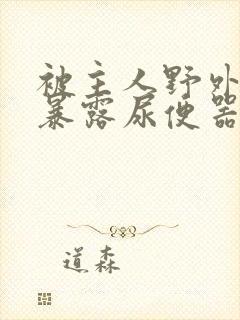 被主人野外
暴露尿便器
道森